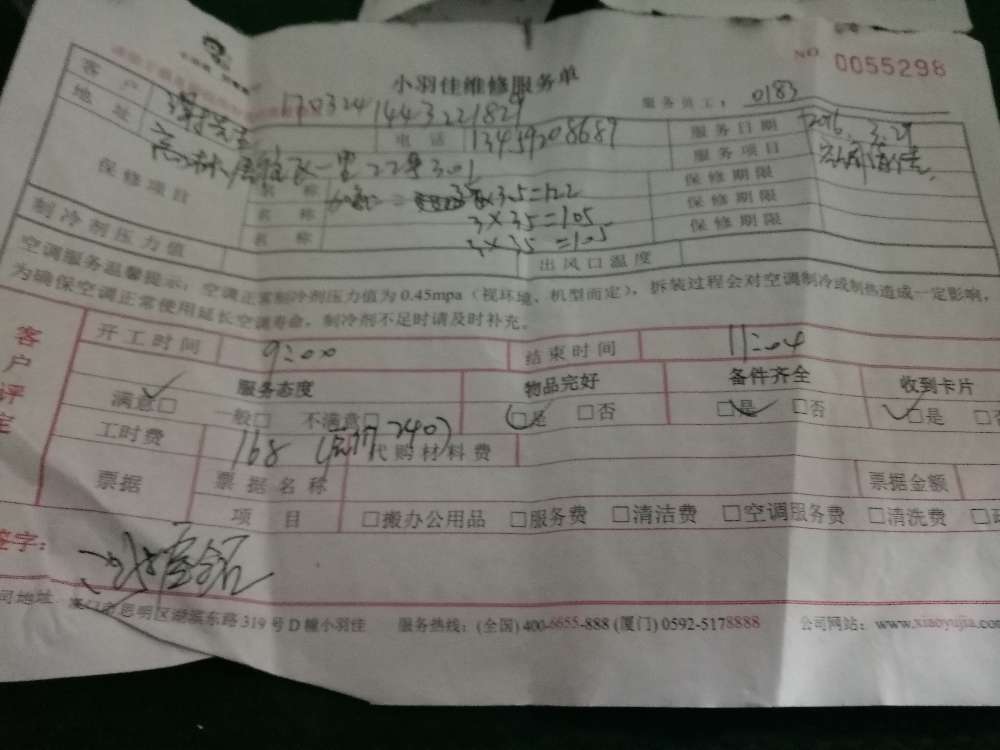 小羽佳维修服务单
NO 0055298
服务员工: 0183
客户 1703241443221829
地址 电话 13459208689 服务日期 2016.3.29
高林居住区一里22号301 服务项目
保修项目 名称 ×35=122 保修期限
名称 3×35=105 保修期限
名称 3×35=105 保修期限
制冷剂压力值 出风口温度
空调服务温馨提示:空调正常制冷剂压力值为0.45mpa(视环境、机型而定),拆装过程会对空调制冷或制热造成一定影响,
为确保空调正常使用延长空调寿命,制冷剂不足时请及时补充。
客户评定
开工时间 9:00 结束时间 11:04
服务态度 物品完好 备件齐全 收到卡片
满意□ 一般□ 不满意□ □是 □否 □是 □否 □是
工时费 168 240) 代购材料费
票据 票据名称 票据金额
项目 □搬办公用品 □服务费 □清洁费 □空调服务费 □清洗费
签字:
司地址: 厦门市思明区湖滨东路319号D幢小羽佳 服务热线:(全国)400-6655-888 (厦门)0592-5178888 公司网站:www.xiaoyujia.com